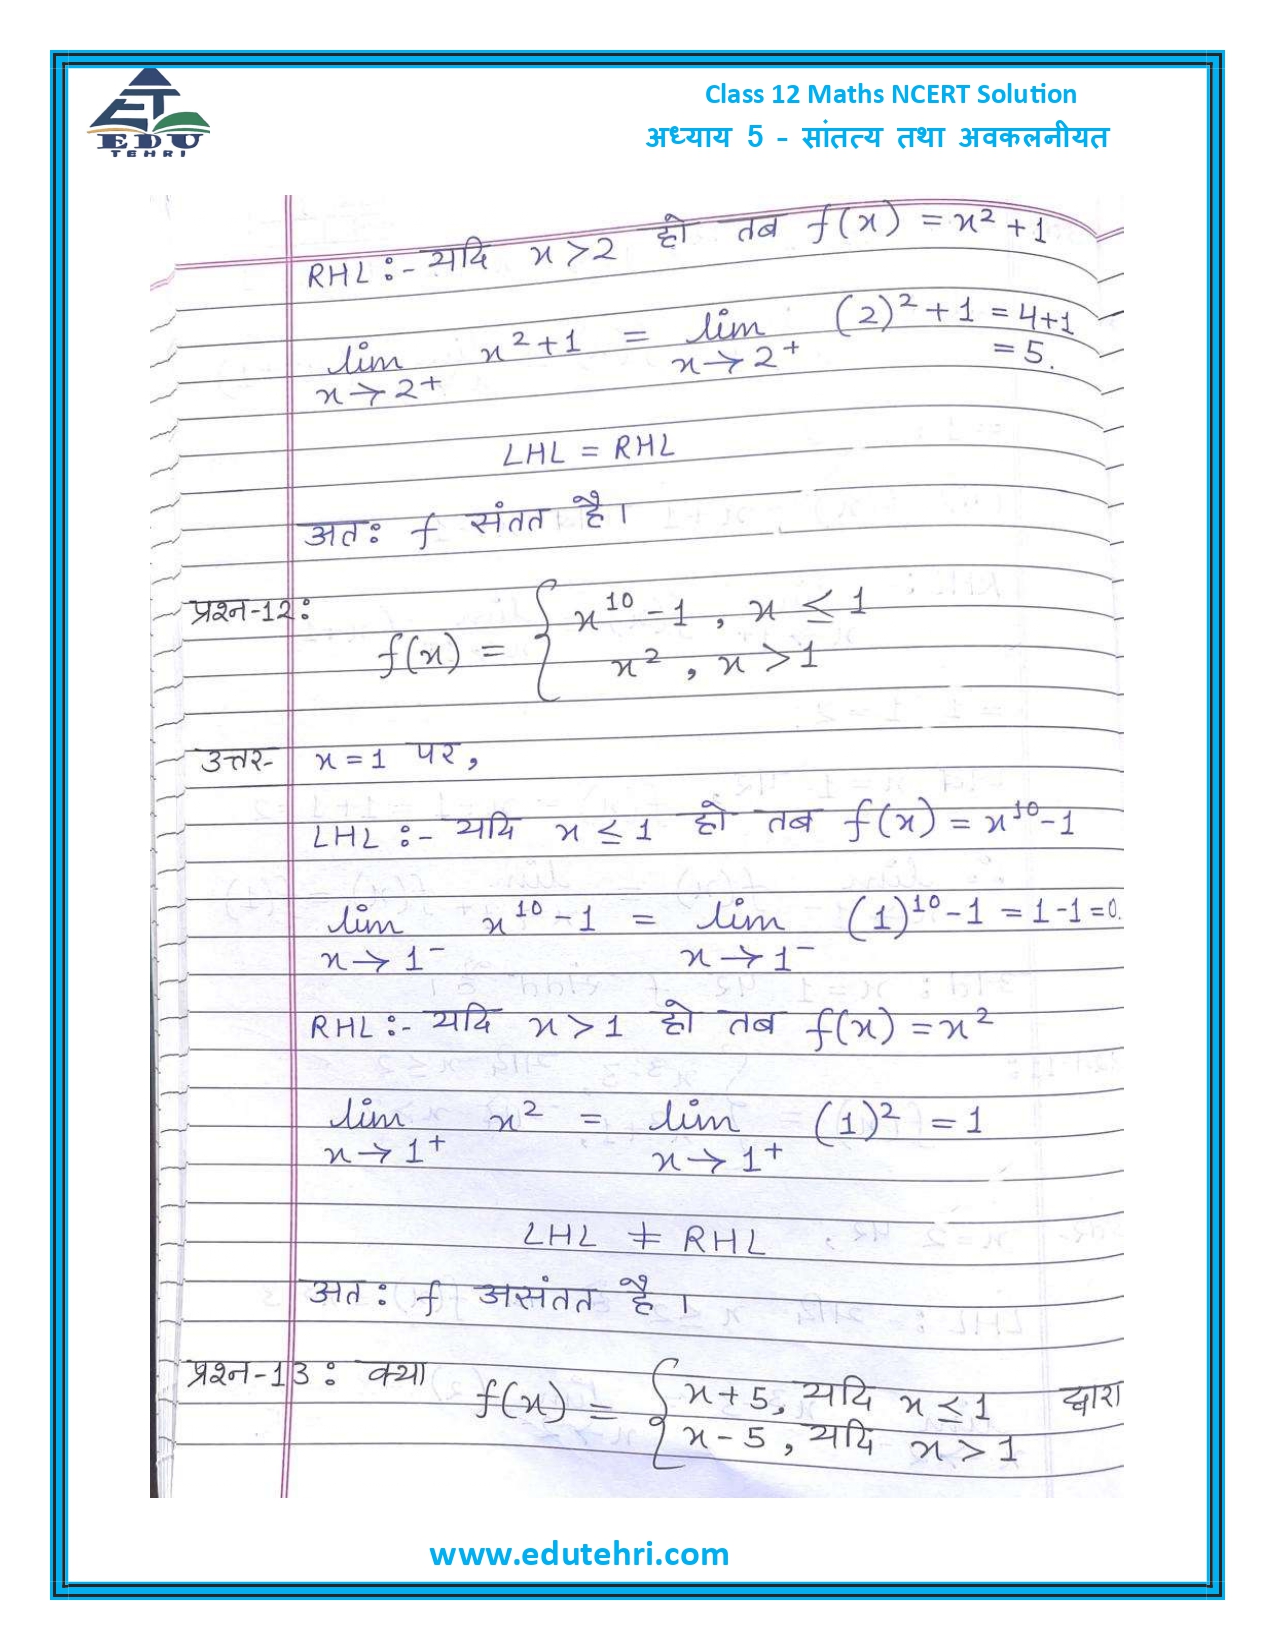 EDU
TEHRI
Class 12 Maths NCERT Solution
अध्याय 5 - सांतत्य तथा अवकलनीयत
RHL :- यदि x > 2 हो तब f(x) = x² + 1
lim x→2⁺ x² + 1 = lim x→2⁺ (2)² + 1 = 4 + 1
= 5.
LHL = RHL
अतः f संतत है।
प्रश्न-12:
f(x) = { x¹⁰ - 1 , x ≤ 1
x² , x > 1
उत्तर- x = 1 पर,
LHL :- यदि x ≤ 1 हो तब f(x) = x¹⁰ - 1
lim x→1⁻ x¹⁰ - 1 = lim x→1⁻ (1)¹⁰ - 1 = 1 - 1 = 0.
RHL :- यदि x > 1 हो तब f(x) = x²
lim x→1⁺ x² = lim x→1⁺ (1)² = 1
LHL ≠ RHL
अतः f असंतत है।
प्रश्न-13: क्या f(x) = { x + 5, यदि x ≤ 1 द्वारा
x - 5, यदि x > 1
www.edutehri.com